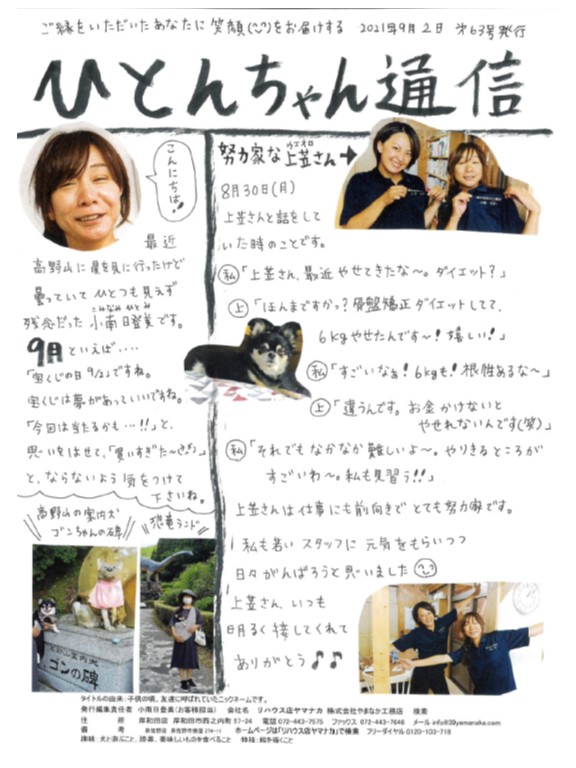 ご縁をいただいたあなたに 笑顔(^_^)をお届けする 2021年9月2日 第63号発行
ひとんちゃん通信
こんにちは!
最近
高野山に星を見に行ったけど
曇っていて ひとつも見えず
こみなみ ひとみ
残念だった 小南日登美です。
9月といえば‥‥
「宝くじの日 9/2」ですね。
宝くじは夢があっていいですね。
「今回は当たるかも…!!」と、
思いをはせて、「買いすぎた〜
と、ならないよう 気をつけて
下さいね。
高野山の案内犬
ゴンちゃんの碑
恐竜ランド
ゴンの碑
ウエガサ
努力家な 上笠さん→
8月30日(月)
上笠さんと話をして
いた時のことです。
私「上笠さん、最近 やせてきたな〜。ダイエット?」
上「ほんまですかっ?骨盤矯正ダイエットしてて、
6kgやせたんです〜!嬉しい!」
私「すごいなぁ!6kgも!根性あるな〜」
上「違うんです。お金かけないと
やせれないんです(笑)」
私「それでもなかなか難しいよ〜。やりきるところが
すごいわ〜。私も見習う!!」
上笠さんは仕事にも前向きで とても努力家です。
私も若いスタッフに 元気をもらいつつ
日々がんばろうと思いました
上笠さん、いつも
明るく接してくれて
ありがとう♪♪
タイトルの由来:子供の頃、友達に呼ばれていたニックネームです。
発行編集責任者 小南日登美(お客様担当) 会社名 リハウス店ヤマナカ 株式会社やまなか工務店 検索
住 所 岸和田店 岸和田市西之内町57-24 電話 072-443-7575 ファックス 072-443-7646 メール info@39yamanaka.com
備 考 泉佐野店 泉佐野市 274-11 ホームページは「リハウス店ヤマナカ」で検索 フリーダイヤル 0120-103-718
趣味:犬と遊ぶこと、読書、美味しいものを食べること 特技:絵を描くこと